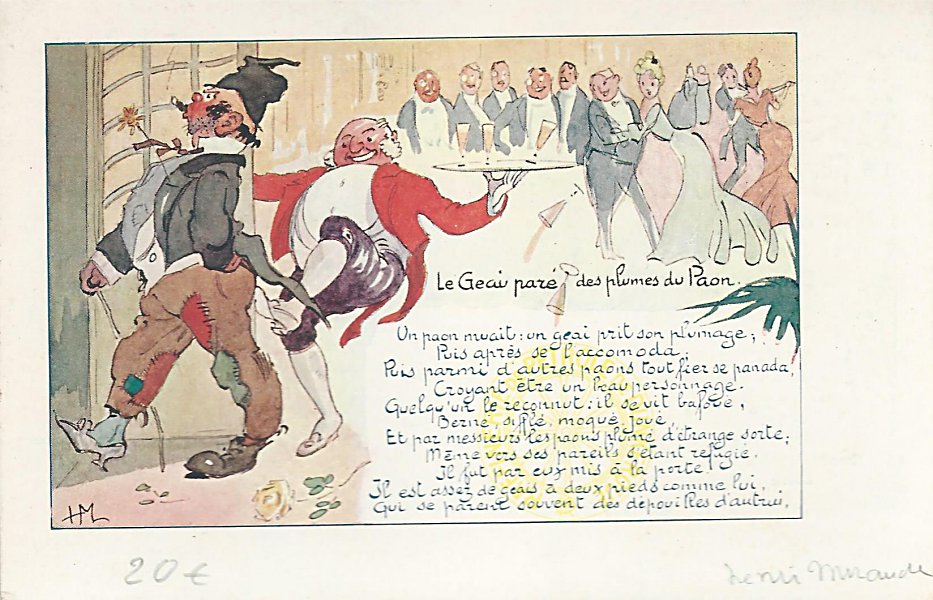 Le Geai paré des plumes du Paon.
Un paon muait : un geai prit son plumage ;
Puis après se l'accomoda ;
Puis parmi d'autres paons tout fier se panada,
Croyant être un beau personnage.
Quelqu'un le reconnut : il se vit bafoué,
Berné, sifflé, moqué, joué,
Et par messieurs les paons plumé d'étrange sorte ;
Même vers ses pareils s'étant réfugié,
Il fut par eux mis à la porte.
Il est assez de geais à deux pieds comme lui,
Qui se parent souvent des dépouilles d'autrui.
HM
20 €
Henri